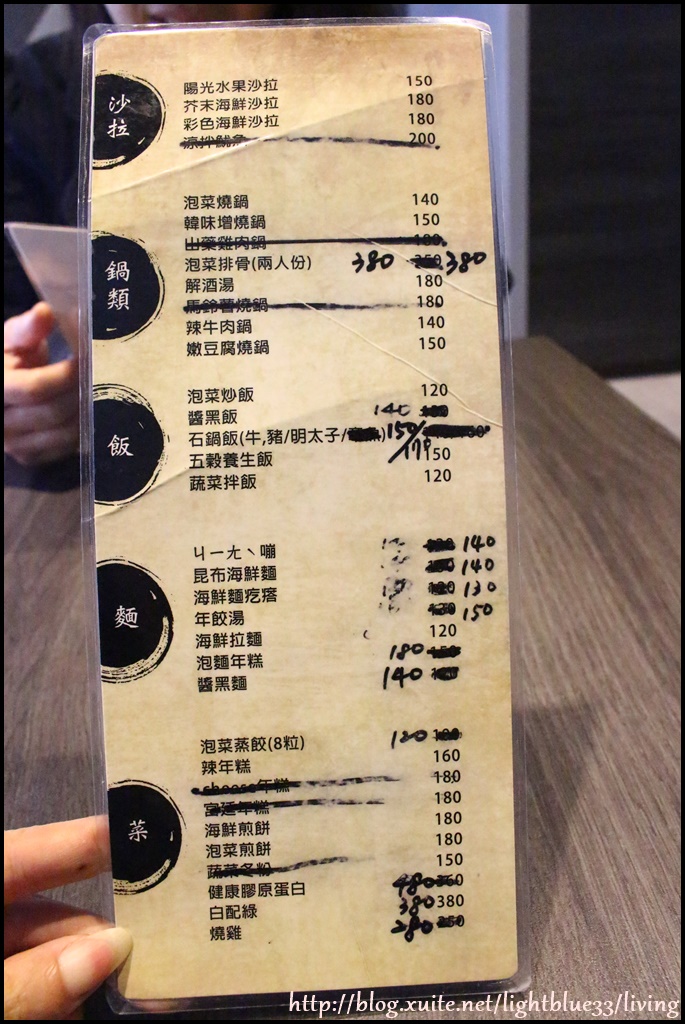 沙拉
陽光水果沙拉 150
芥末海鮮沙拉 180
彩色海鮮沙拉 180
涼拌魷魚 200
鍋類
泡菜燒鍋 140
韓味增燒鍋 150
山藥雞肉鍋 180
泡菜排骨(兩人份) 380 380
解酒湯 180
馬鈴薯燒鍋 180
辣牛肉鍋 140
嫩豆腐燒鍋 150
飯
泡菜炒飯 120
醬黑飯 140
石鍋飯(牛,豬/明太子/ )150/170
五穀養生飯 150
蔬菜拌飯 120
麵
ㄐㄧㄤ丶嘣 140
昆布海鮮麵 140
海鮮麵疙瘩 130
年餃湯 150
海鮮拉麵 120
泡麵年糕 180
醬黑麵 140
菜
泡菜蒸餃(8粒) 120
辣年糕 160
cheese年糕 180
宮廷年糕 180
海鮮煎餅 180
泡菜煎餅 180
蔬菜冬粉 150
健康膠原蛋白 480
白配綠 380 380
燒雞 280
http://blog.xuite.net/lightblue33/living